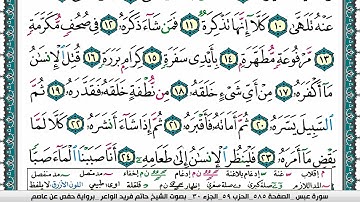 عَنْهُ تَلَهَّىٰ ١٠ كَلَّا إِنَّهَا تَذْكِرَةٌ ١١ فَمَن شَاءَ ذَكَرَهُ ١٢ فِي صُحُفٍ مُّكَرَّمَةٍ
١٣ مَّرْفُوعَةٍ مُّطَهَّرَةٍ ١٤ بِأَيْدِي سَفَرَةٍ ١٥ كِرَامٍ بَرَرَةٍ ١٦ قُتِلَ الْإِنسَٰنُ
مَا أَكْفَرَهُ ١٧ مِنْ أَيِّ شَيْءٍ خَلَقَهُ ١٨ مِن نُّطْفَةٍ خَلَقَهُ فَقَدَّرَهُ ١٩ ثُمَّ
السَّبِيلَ يَسَّرَهُ ٢٠ ثُمَّ أَمَاتَهُ فَأَقْبَرَهُ ٢١ ثُمَّ إِذَا شَاءَ أَنشَرَهُ ٢٢ كَلَّا لَمَّا
يَقْضِ مَا أَمَرَهُ ٢٣ فَلْيَنظُرِ الْإِنسَٰنُ إِلَىٰ طَعَامِهِ ٢٤ أَنَّا صَبَبْنَا الْمَاءَ صَبًّا
سورة عبس . الصفحة ٥٨٥ . الحزب ٥٩ . الجزء ٣٠ . بصوت الشيخ حاتم فريد الواعر . برواية حفص عن عاصم